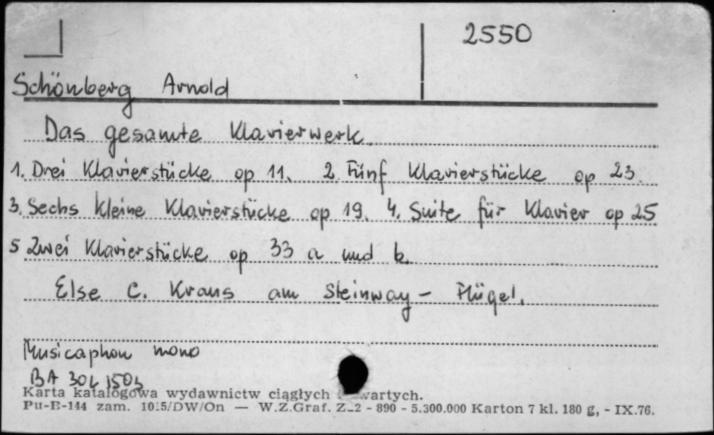 2550
Schönberg Arnold
Das gesamte Klavierwerk.
1. Drei Klavierstücke op 11. 2. Fünf Klavierstücke op 23.
3. Sechs kleine Klavierstücke op 19. 4. Suite für Klavier op 25
5 Zwei Klavierstücke op 33 a und b.
Else C. Kraus am Steinway - Flügel.
Musicaphon mono
BA 30L 1503
Karta katalogowa wydawnictw ciągłych wartych.
Pu-B-144 zam. 1015/DW/On — W.Z.Graf. Z-2 - 890 - 5.300.000 Karton 7 kl. 180 g, - IX.76.